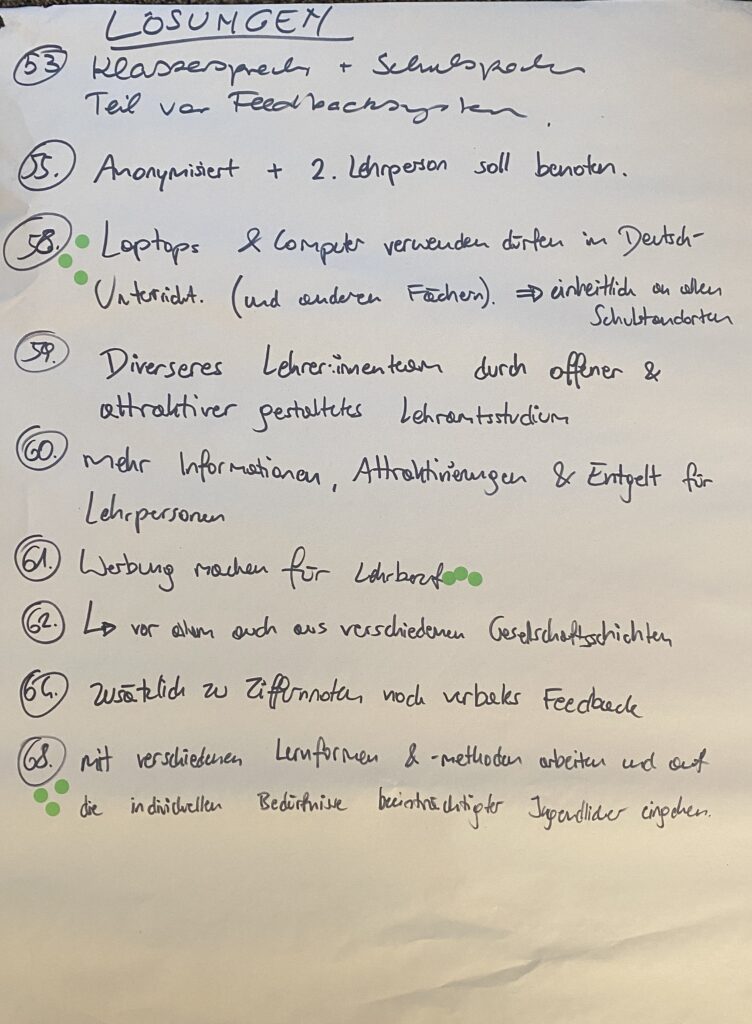 LÖSUNGEN
53 Klassensprecher + Schulsprecher
Teil von Feedbacksystem.
55. Anonymisiert + 2. Lehrperson soll benoten.
58. Laptops & Computer verwenden dürfen im Deutsch-
Unterricht. (und anderen Fächern). ⇒ einheitlich an allen
Schulstandorten
59. Diverseres Lehrer:innenteam durch offener &
attraktiver gestaltetes Lehramtsstudium
60. mehr Informationen, Attraktivierungen & Entgelt für
Lehrpersonen
61. Werbung machen für Lehrberuf
62. ↳ vor allem auch aus verschiedenen Gesellschaftsschichten
64. zusätzlich zu Ziffernnoten noch verbales Feedback
68. mit verschiedenen Lernformen & -methoden arbeiten und auf
die individuellen Bedürfnisse beeinträchtigter Jugendlicher eingehen.